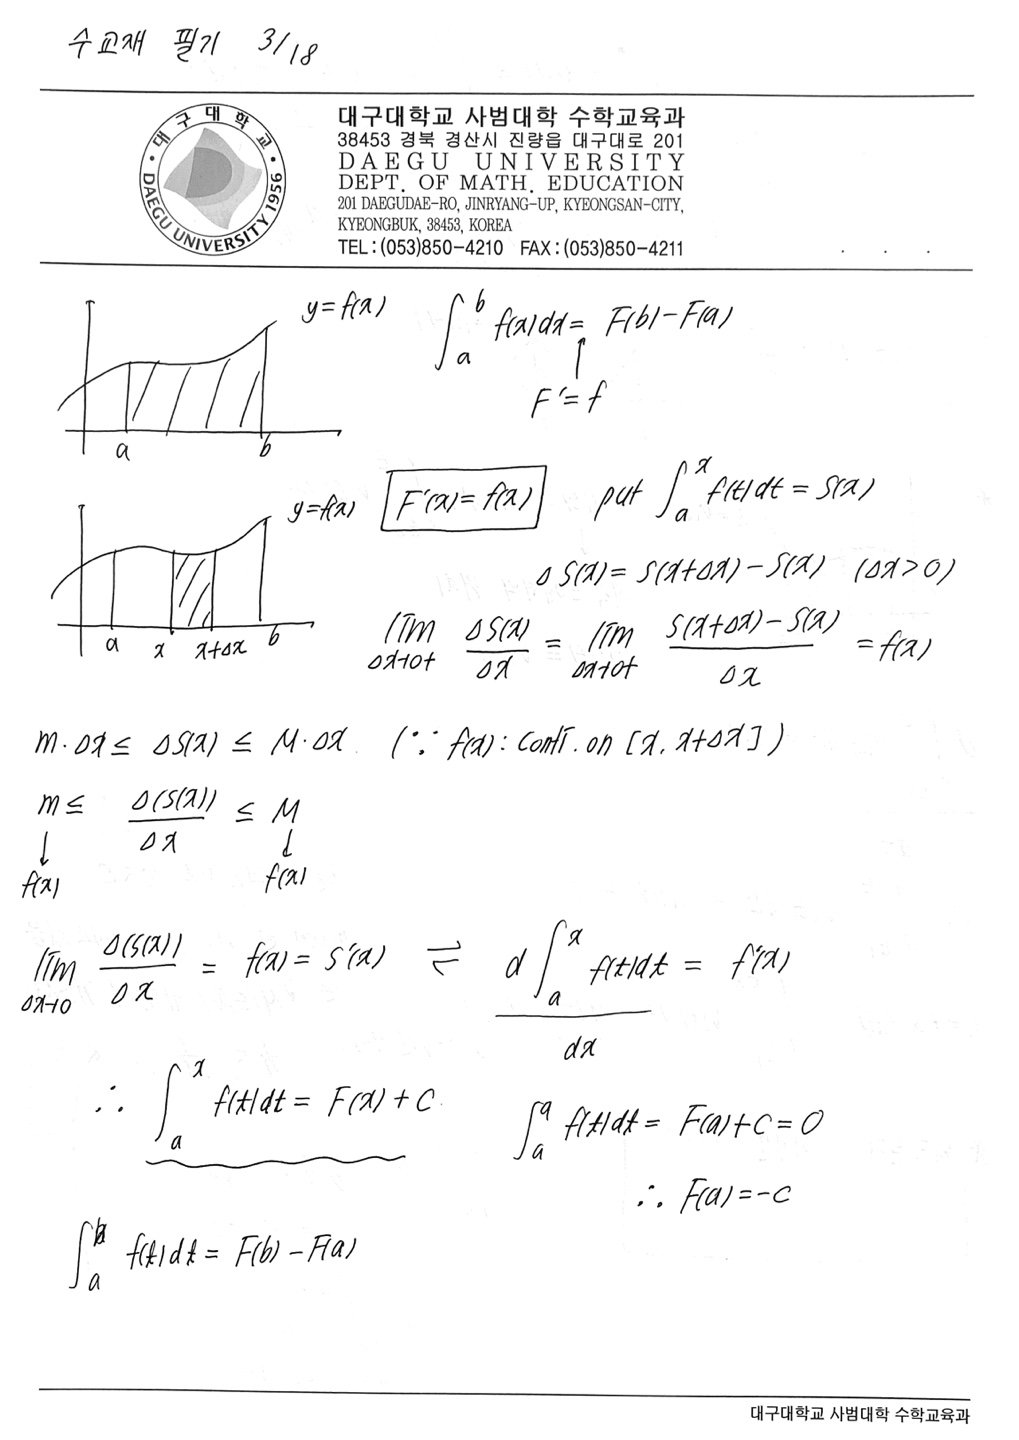 수교재 필기 3/18
대구대학교
DAEGU UNIVERSITY 1956
대구대학교 사범대학 수학교육과
38453 경북 경산시 진량읍 대구대로 201
DAEGU UNIVERSITY
DEPT. OF MATH. EDUCATION
201 DAEGUDAE-RO, JINRYANG-UP, KYEONGSAN-CITY,
KYEONGBUK, 38453, KOREA
TEL:(053)850-4210 FAX:(053)850-4211
y=f(x) ∫_a^b f(x)dx = F(b)-F(a)
↑
F'=f
a b
y=f(x) F'(x)=f(x) put ∫_a^x f(t)dt = S(x)
ΔS(x)= S(x+Δx)-S(x) (Δx>0)
a x x+Δx b
lim_{Δx→0+} ΔS(x)/Δx = lim_{Δx→0+} (S(x+Δx)-S(x))/Δx = f(x)
m·Δx ≤ ΔS(x) ≤ M·Δx (∵ f(x): conti. on [x, x+Δx])
m ≤ Δ(S(x))/Δx ≤ M
↓ ↓
f(x) f(x)
lim_{Δx→0} Δ(S(x))/Δx = f(x) = S'(x) ⇌ d∫_a^x f(t)dt/dx = f(x)
∴ ∫_a^x f(t)dt = F(x)+C
∫_a^a f(t)dt = F(a)+C=0
∴ F(a)=-C
∫_a^b f(t)dt = F(b)-F(a)
대구대학교 사범대학 수학교육과